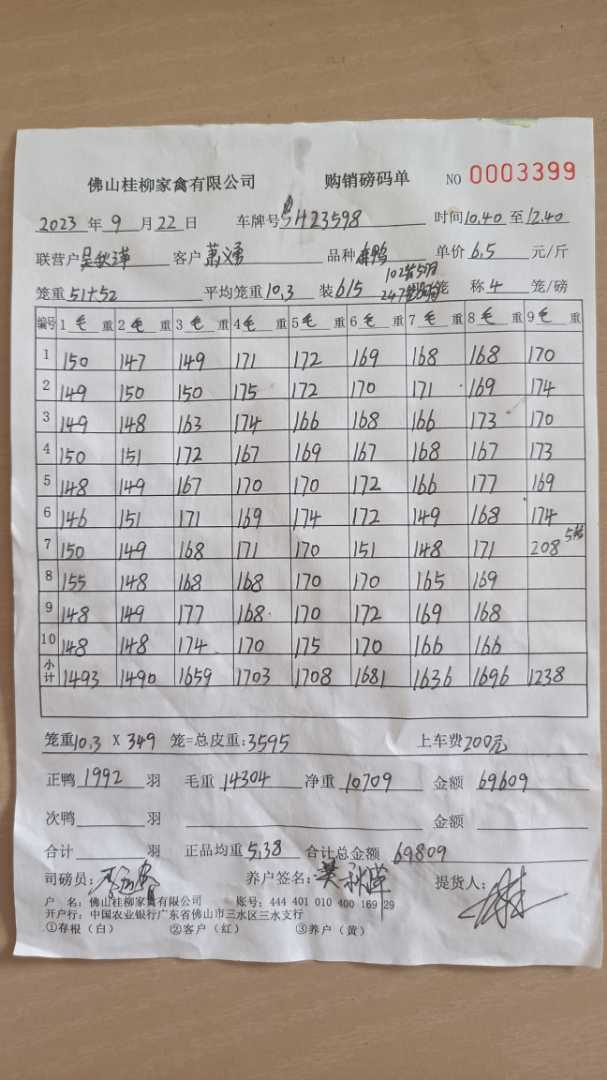 佛山桂柳家禽有限公司 购销磅码单 NO 0003399
2023 年 9 月 22 日 车牌号 H23598 时间 10.40 至 12.40
联营户 吴秋 客户 萧义勇 品种 鸭 单价 6.5 元/斤
笼重 51+52 平均笼重 10.3 装 6/5 102 5 247 笼 称 4 笼/磅
编号 1 毛 重 2 毛 重 3 毛 重 4 毛 重 5 毛 重 6 毛 重 7 毛 重 8 毛 重 9 毛 重
1 150 147 149 171 172 169 168 168 170
2 149 150 150 175 172 170 171 169 174
3 149 148 163 174 166 168 166 173 170
4 150 151 172 167 169 167 168 167 173
5 148 149 167 170 170 172 166 177 169
6 146 151 171 169 174 172 149 168 174
7 150 149 168 171 170 151 148 171 208 5
8 155 148 168 168 170 170 165 169
9 148 149 177 168 170 172 169 168
10 148 148 174 170 175 170 166 166
小计 1493 1490 1659 1703 1708 1681 1636 1696 1238
笼重 10.3 X 349 笼=总皮重: 3595 上车费 200元
正鸭 1992 羽 毛重 14304 净重 10709 金额 69609
次鸭 羽 金额
合计 羽 正品均重 5.38 合计总金额 69809
司磅员: 养户签名: 吴秋 提货人:
户 名: 佛山桂柳家禽有限公司 账号: 444 401 010 400 169 29
开户行: 中国农业银行广东省佛山市三水区三水支行
①存根（白） ②客户（红） ③养户（黄）